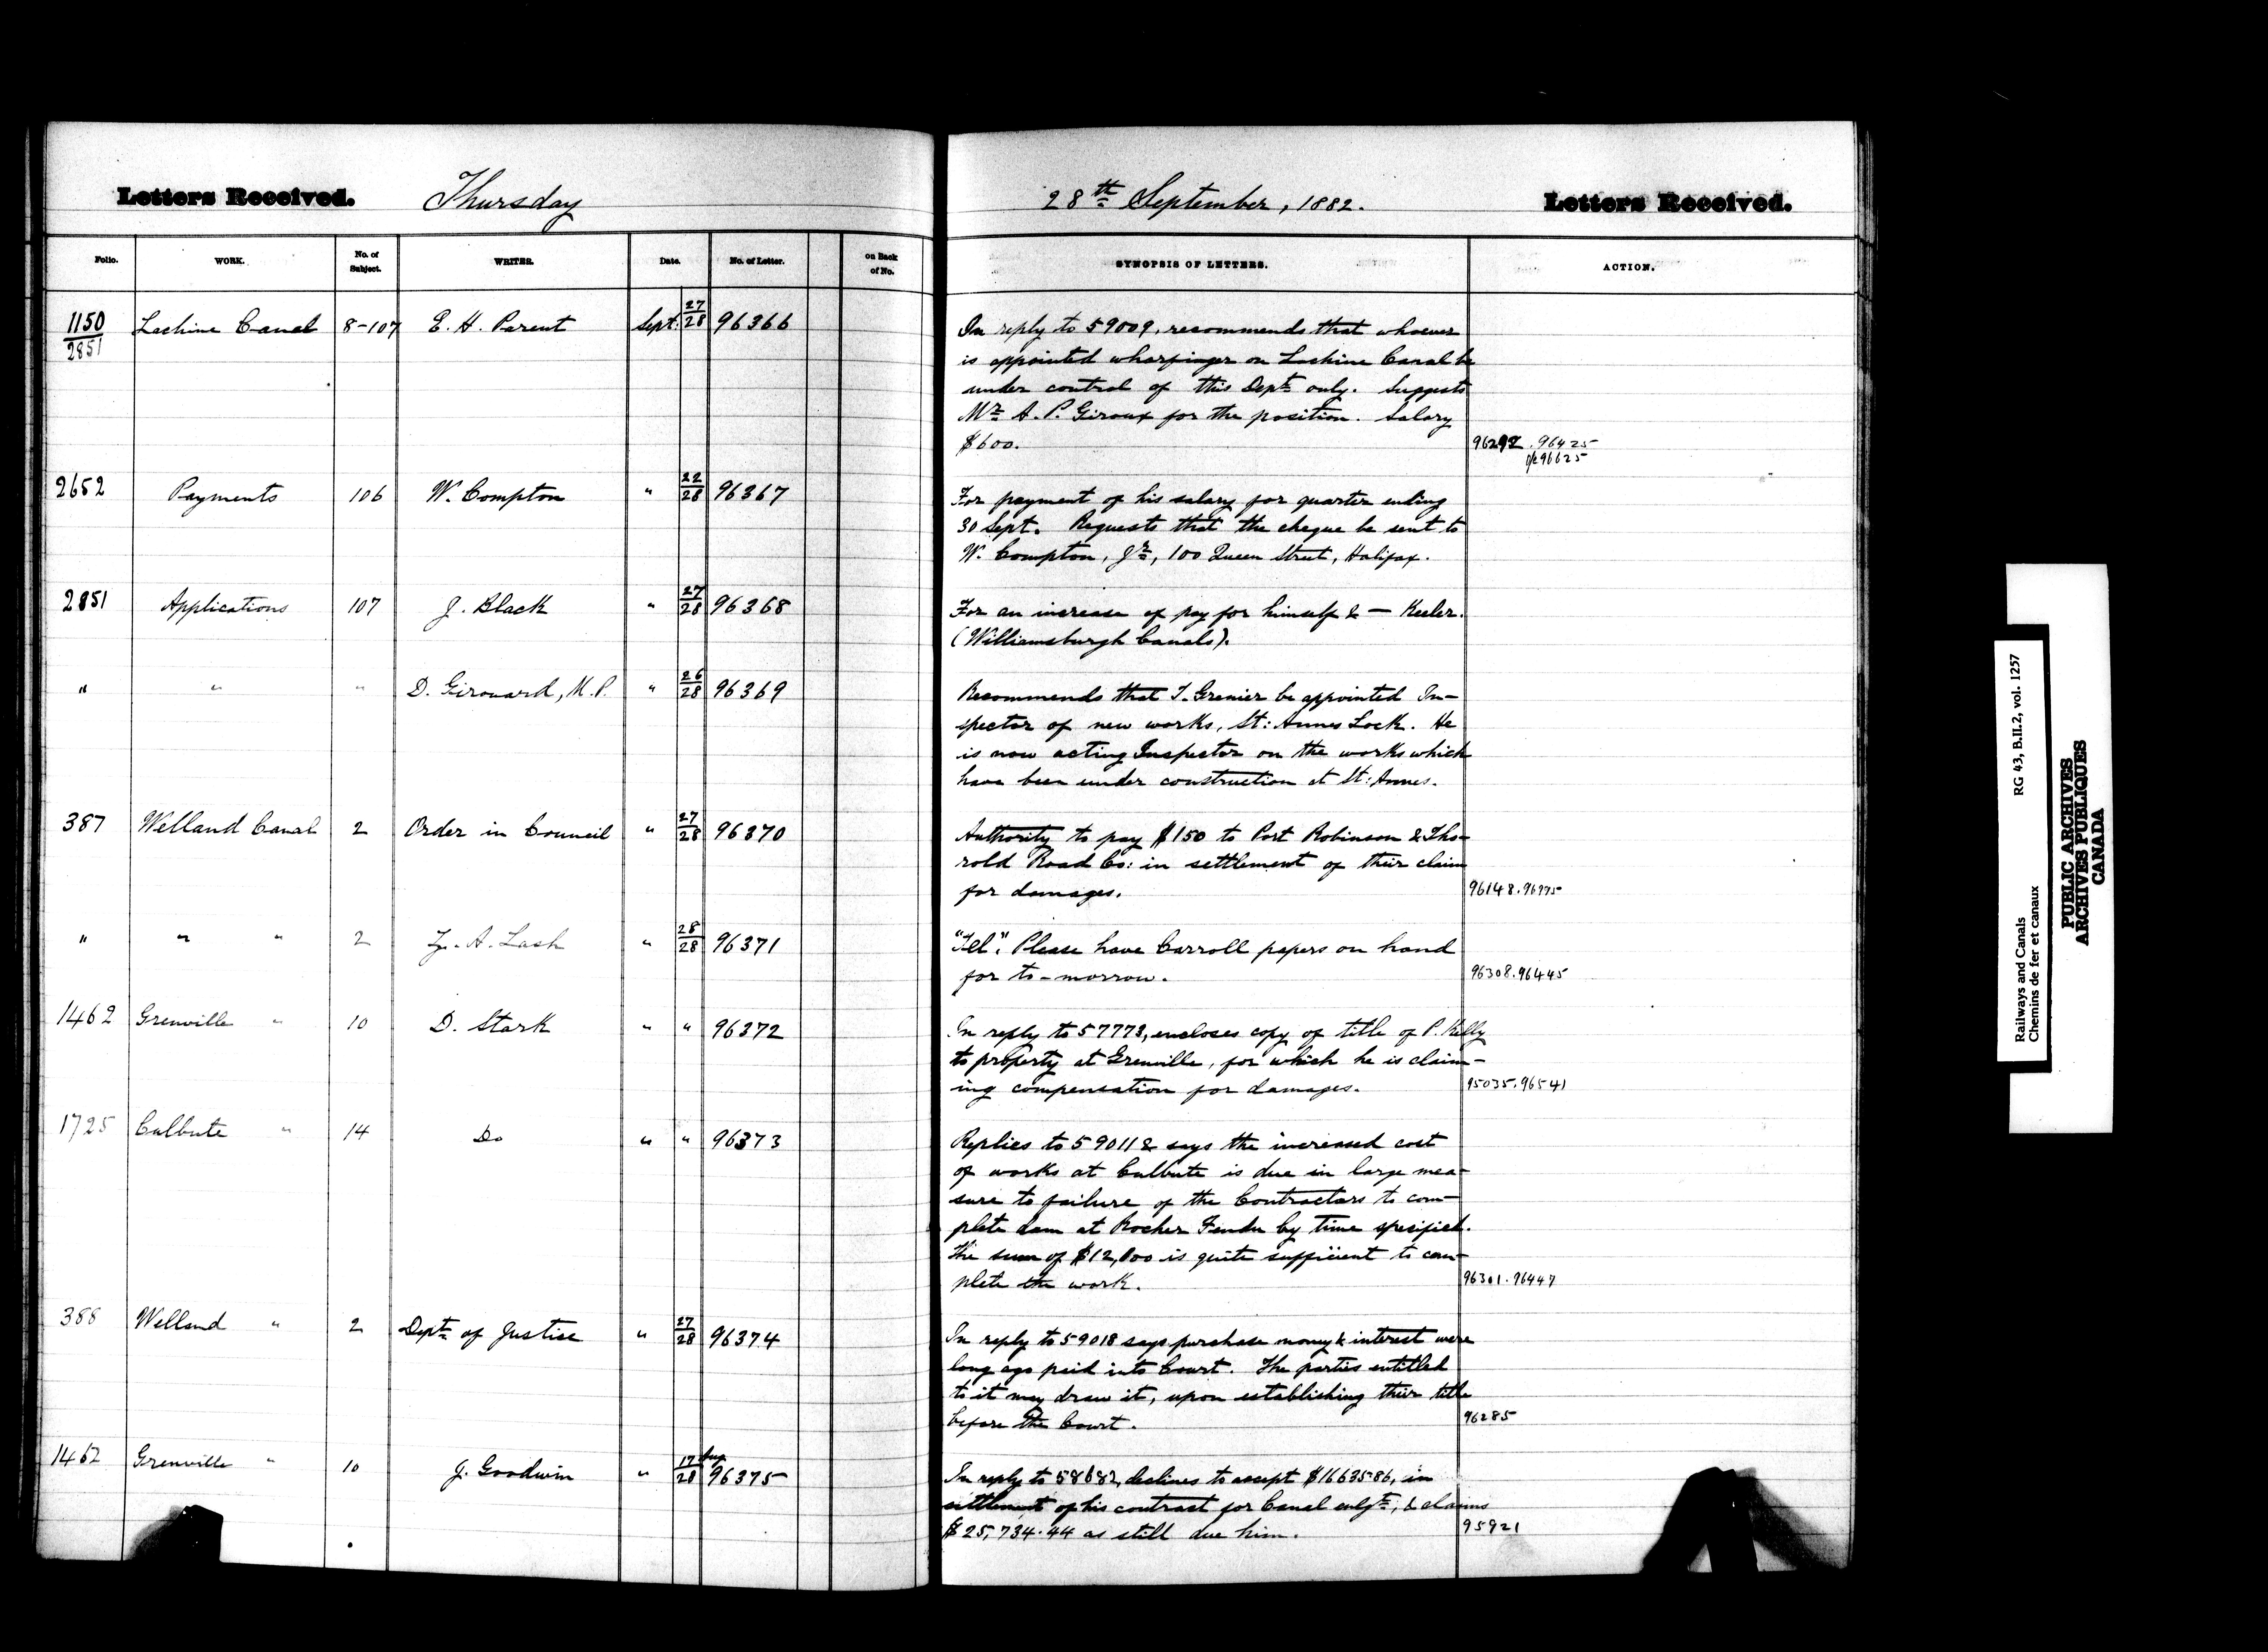 Letters Received. Thursday
28th September, 1882. Letters Received.
Folio. WORK. No. of Subject. WRITER. Date. No. of Letter. on Back of No. SYNOPSIS OF LETTERS. ACTION.
1150/2851 Lachine Canal 8-107 E. H. Parent Sept. 27/28 96366
In reply to 59009, recommends that whoever
is appointed wharfinger on Lachine Canal be
under control of this Dept only. Suggests
Mr A. P. Giroux for the position. Salary
$600. 96292 . 96425
96625
2652 Payments 106 W. Compton " 22/28 96367
For payment of his salary for quarter ending
30 Sept. Requests that the cheque be sent to
W. Compton, Jr, 100 Queen Street, Halifax.
2851 Applications 107 J. Black " 27/28 96368
For an increase of pay for himself & — Keeler.
(Williamsburgh Canals).
" " " D. Girouard, M.P. " 26/28 96369
Recommends that T. Grenier be appointed In-
spector of new works, St: Annes Lock. He
is now acting Inspector on the works which
have been under construction at St: Annes.
387 Welland Canal 2 Order in Council " 27/28 96370
Authority to pay $150 to Port Robinson & Tho-
rold Road Co: in settlement of their claim
for damages. 96148.
" " " 2 Z. A. Lash " 28/28 96371
"Tel". Please have Carroll papers on hand
for to-morrow. 96308.96445
1462 Grenville " 10 D. Stark " " 96372
In reply to 57773, encloses copy of title of P. Kelly
to property at Grenville, for which he is claim-
ing compensation for damages. 95035.96541
1725 Culbute " 14 Do " " 96373
Replies to 59011 & says the increased cost
of works at Culbute is due in large mea-
sure to failure of the Contractors to com-
plete dam at Rocher Fendu by time specified.
The sum of $12,000 is quite sufficient to com-
plete the work. 96301.96447
388 Welland " 2 Dept of Justice " 27/28 96374
In reply to 59018 says purchase money & interest were
long ago paid into Court. The parties entitled
to it may draw it, upon establishing their title
before the Court. 96285
1462 Grenville " 10 J. Goodwin " 17 Aug/28 96375
In reply to 58682, declines to accept $16635.86, in
settlement of his contract for Canal enlgt, & claims
$25,734.44 as still due him. 95921
Railways and Canals RG 43, B.II.2, vol. 1257
Chemins de fer et canaux
PUBLIC ARCHIVES
ARCHIVES PUBLIQUES
CANADA